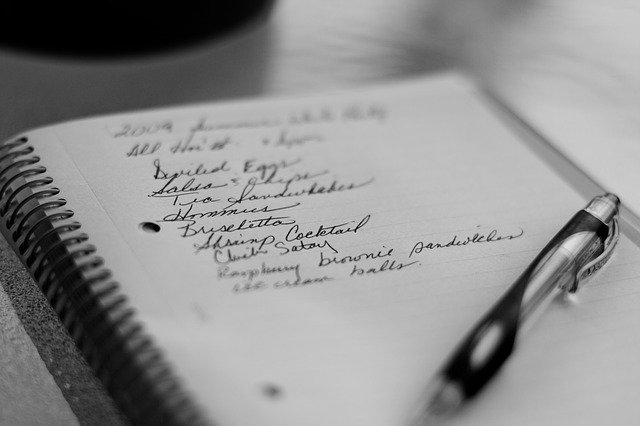 2009 Summer White Party
All Hw'dt + 6ppm
Deviled Eggs
Salsa + Chips
Tea Sandwhiches
Hommus
Brischetta
Shrimp Cocktail
Chick Satay
Raspberry brownie sandwiches
ice cream balls.